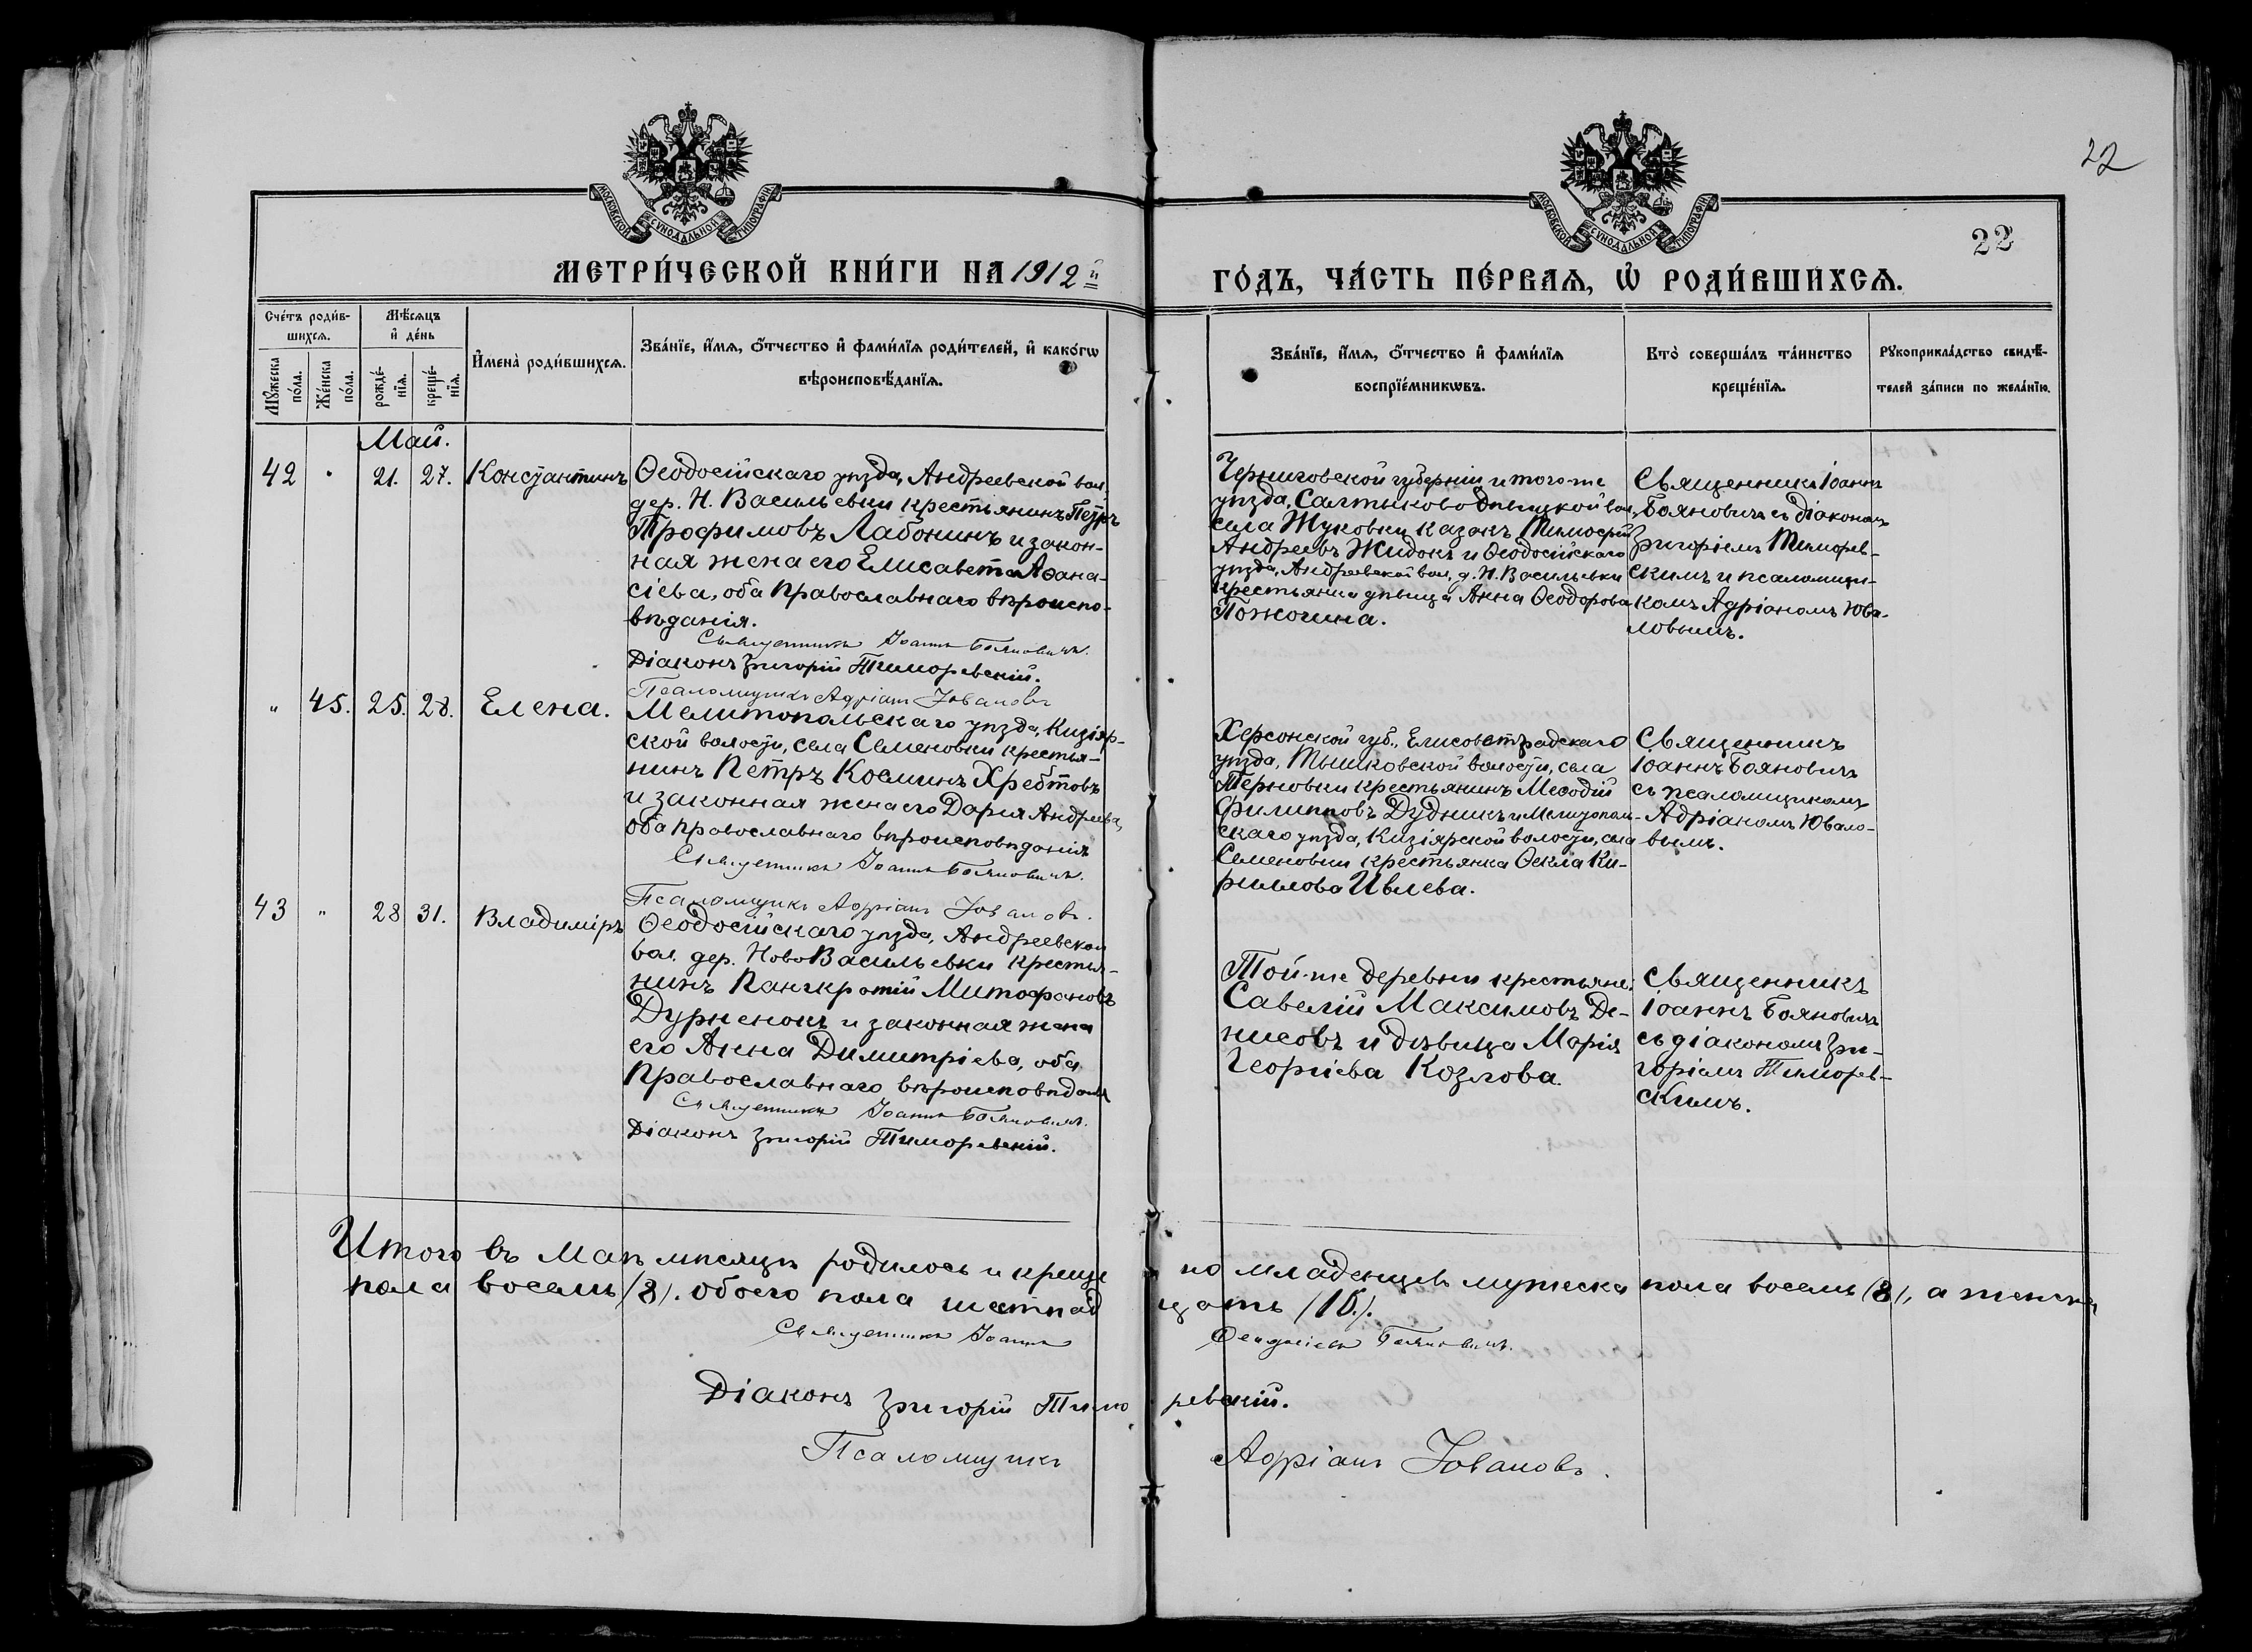 22
МОСКОВСКОЙ СѴНОДАЛЬНОЙ ТИПОГРАФІИ
МОСКОВСКОЙ СѴНОДАЛЬНОЙ ТИПОГРАФІИ
22
МЕТРИ́ЧЕСКОЙ КНИ́ГИ НА 1912 й
ГО́ДЪ, ЧА́СТЬ ПЕ́РВАѦ, Ѡ҆ РОДИ́ВШИХСѦ.
Сче́тъ роди́в-
шихсѧ.
Мꙋ́жеска
по́ла.
Же́нска
по́ла.
Мѣ́сѧцъ
и҆ де́нь
рожде́-
нїѧ.
креще́-
нїѧ.
И҆мена̀ роди́вшихсѧ.
Зва́нїе, и҆́мѧ, ѻ҆́тчество и҆ фами́лїѧ роди́телей, и҆ како́гѡ
вѣроисповѣ́данїѧ.
Зва́нїе, и҆́мѧ, ѻ҆́тчество и҆ фами́лїѧ
воспрїе́мникѡвъ.
Кто̀ соверша́лъ та́инство
креще́нїѧ.
Рꙋкоприкла́дство свидѣ́-
телей за́писи по жела́нїю.
Май.
42 " 21. 27. Константинъ
Ѳеодосійскаго уѣзда, Андреевской вол.
дер. Н. Васильевки крестьянинъ Петръ
Трофимовъ Лабонинъ и закон-
ная жена его Елисавета Аѳана-
сіева, оба православнаго вѣроиспо-
вѣданія.
Священникъ Іоаннъ Бояновичъ.
Діаконъ Григорій Тиморевскій.
Псаломщикъ Адріанъ Юваловъ
Черниговской губерніи и того-же
уѣзда, Салтыково Дѣвицкой вол.
села Жуковки казакъ Тимоѳей
Андреевъ Жидокъ и Ѳеодосійскаго
уѣзда, Андреевской вол. д. Н. Васильевки
крестьянка дѣвица Анна Ѳеодорова
Пожогина.
Священникъ Іоаннъ
Бояновичъ съ діакономъ
Григоріемъ Тиморев-
скимъ и псаломщи-
комъ Адріаномъ Юва-
ловымъ.
" 45. 25. 28. Елена.
Мелитопольскаго уѣзда, Кизіяр-
ской волости, села Семеновки крестья-
нинъ Петръ Косминъ Хребтовъ
и законная жена его Дарія Андреева,
оба православнаго вѣроисповѣданія
Священникъ Іоаннъ Бояновичъ.
Псаломщикъ Адріанъ Юваловъ.
Херсонской губ., Елисоветградскаго
уѣзда, Тышковской волости, села
Терновки крестьянинъ Меѳодій
Филипповъ Дудникъ и Мелитополь-
скаго уѣзда, Кизіярской волости, села
Семеновки крестьянка Ѳекла Ки-
риллова Ивлева.
Священникъ
Іоаннъ Бояновичъ
съ псаломщикомъ
Адріаномъ Ювало-
вымъ.
43 " 28 31. Владиміръ
Ѳеодосійскаго уѣзда, Андреевской
вол. дер. Ново Васильевки крестья-
нинъ Панкратій Митофановъ
Дурненокъ и законная жена
его Анна Димитріева, оба
православнаго вѣроисповѣданія
Священникъ Іоаннъ Бояновичъ.
Діаконъ Григорій Тиморевскій.
Той-же деревни крестьяне:
Савелій Максимовъ Де-
нисовъ и дѣвица Марія
Георгіева Козлова.
Священникъ
Іоаннъ Бояновичъ
съ діакономъ Гри-
горіемъ Тиморев-
скимъ.
Итого въ Маѣ мѣсяцѣ родилось и креще но младенцевъ мужеска пола восемь (8), а женска
пола восемь (8). обоего пола шестнад цать (16.).
Священникъ Іоаннъ Бояновичъ.
Діаконъ Григорій Тимо ревскій.
Псаломщикъ Адріанъ Юваловъ.